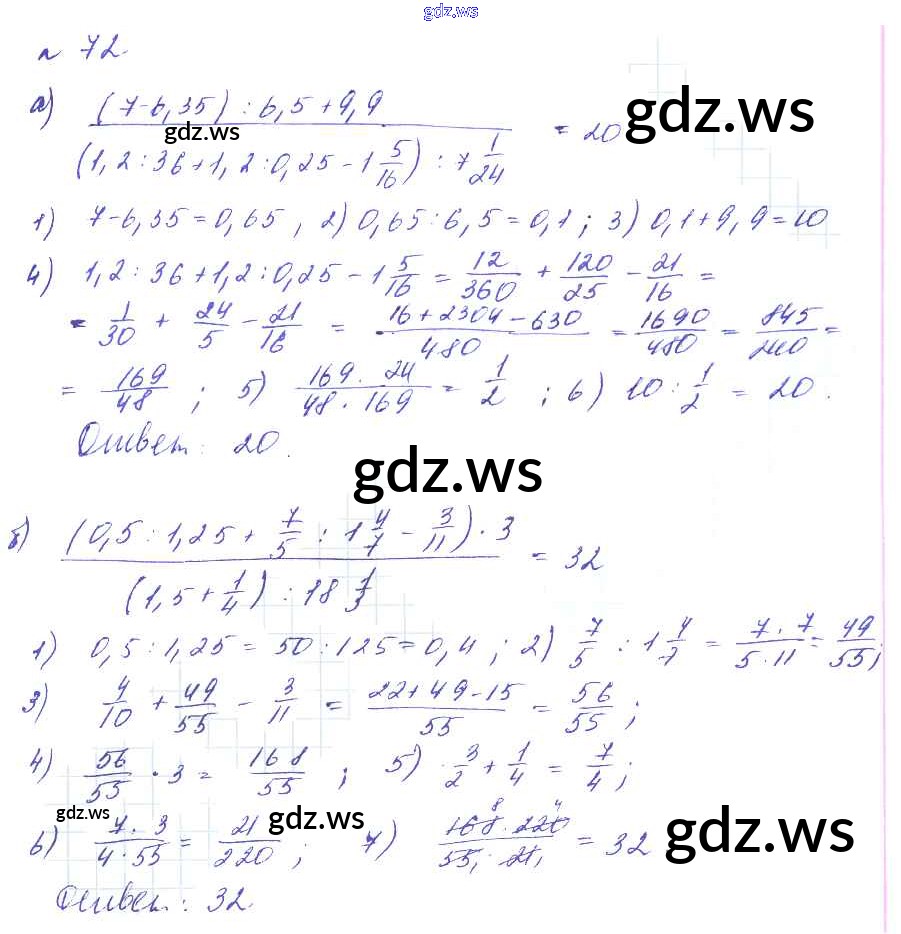 gdz.ws
n 72.
а) (7-6,35) : 6,5 + 9,9 / (1,2 : 36 + 1,2 : 0,25 - 1 5/16) : 7 1/24 = 20
gdz.ws
gdz.ws
1) 7-6,35 = 0,65 , 2) 0,65 : 6,5 = 0,1 ; 3) 0,1 + 9,9 = 10
4) 1,2 : 36 + 1,2 : 0,25 - 1 5/16 = 12/360 + 120/25 - 21/16 =
= 1/30 + 24/5 - 21/16 = 16 + 2304 - 630 / 480 = 1690/480 = 845/240 =
= 169/48 ; 5) 169 · 24 / 48 · 169 = 1/2 ; 6) 10 : 1/2 = 20.
Ответ: 20.
gdz.ws
б) (0,5 : 1,25 + 7/5 : 1 4/7 - 3/11) · 3 / (1,5 + 1/4) : 18 1/3 = 32
1) 0,5 : 1,25 = 50 : 125 = 0,4 ; 2) 7/5 : 1 4/7 = 7 · 7 / 5 · 11 = 49/55 ;
3) 4/10 + 49/55 - 3/11 = 22 + 49 - 15 / 55 = 56/55 ;
4) 56/55 · 3 = 168/55 ; 5) 3/2 + 1/4 = 7/4 ;
gdz.ws
gdz.ws
gdz.ws
6) 7 · 3 / 4 · 55 = 21/220 ; 7) 168 · 220 / 55 · 21 = 32
Ответ: 32.